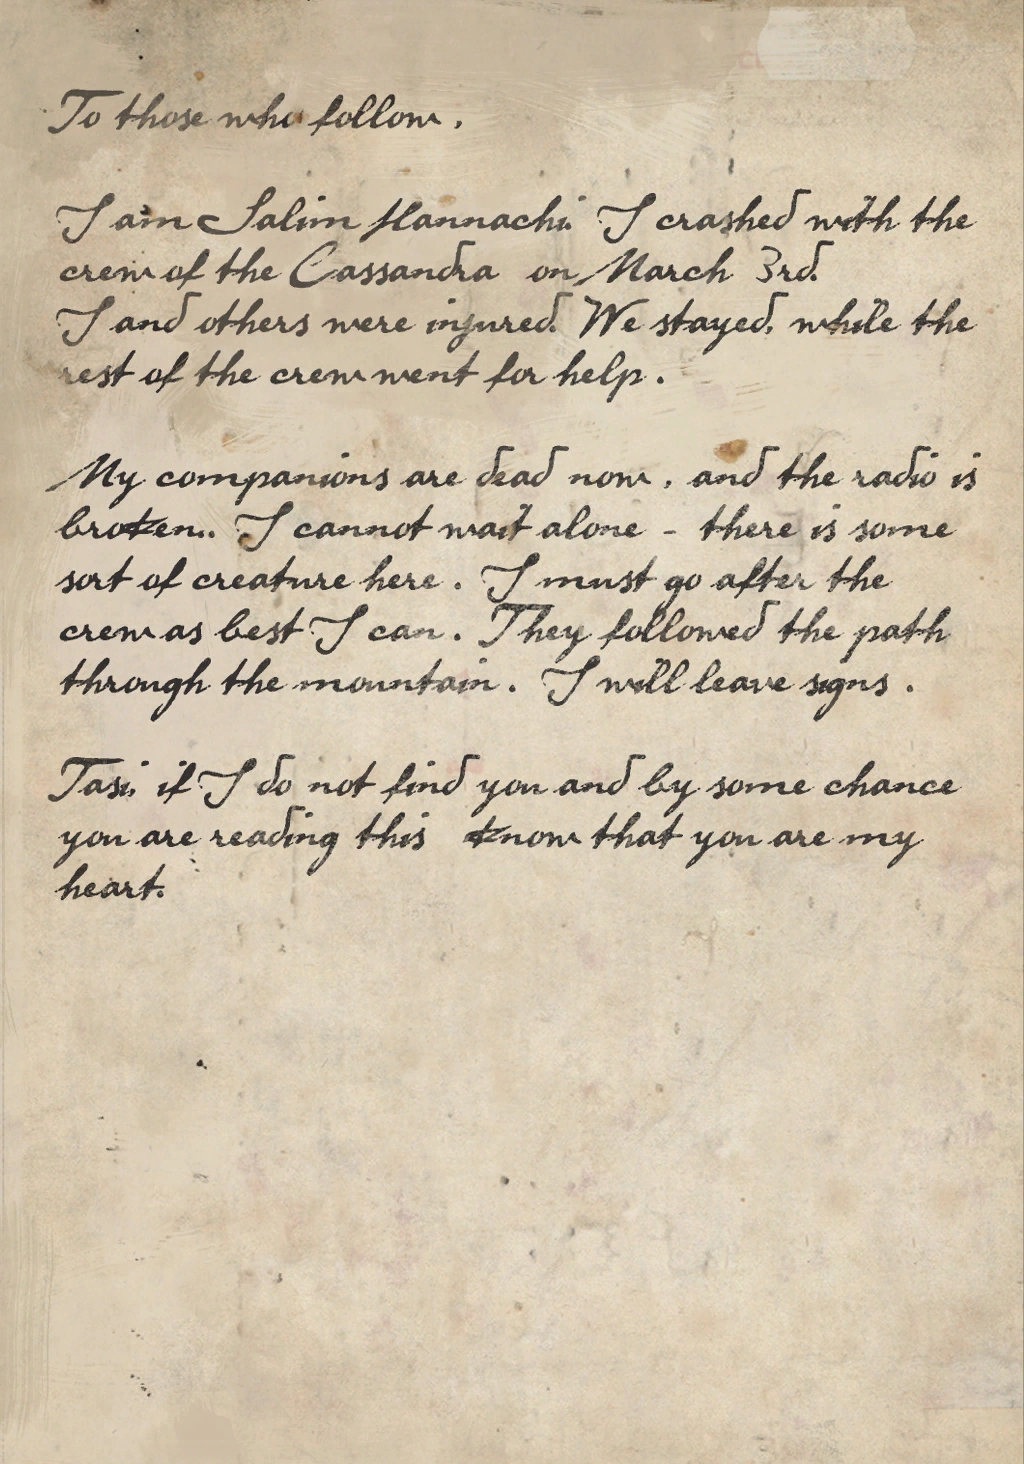 To those who follow.
I am Salim Hannachi. I crashed with the
crew of the Cassandra on March 3rd.
I and others were injured. We stayed, while the
rest of the crew went for help.
My companions are dead now, and the radio is
broken.. I cannot wait alone - there is some
sort of creature here. I must go after the
crew as best I can. They followed the path
through the mountain. I will leave signs.
Tasi, if I do not find you and by some chance
you are reading this know that you are my
heart.